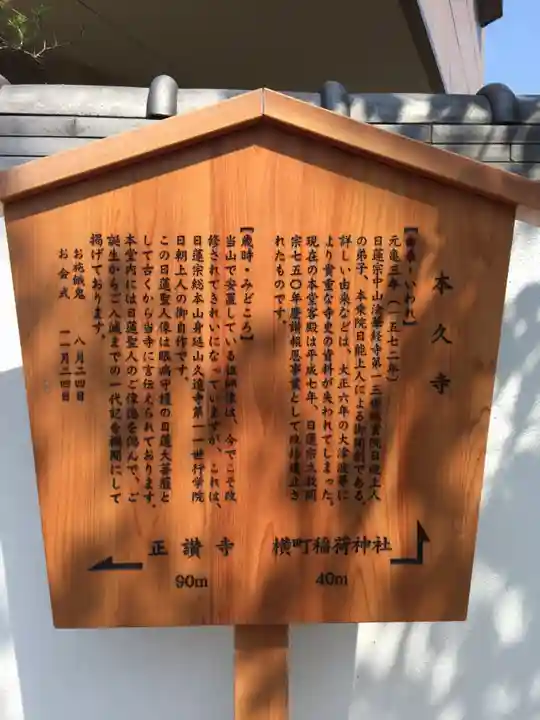 本久寺
【由来・いわれ】
元亀三年(一五七二年)
日蓮宗中山法華経寺第一三世
日
上人
の弟子、本乗院日能上人による御開創である。
詳しい由来などは、大正六年の大津波に
より貴重な寺史の資料が失われてしまった。
現在の本堂客殿は平成七年、日蓮宗立教開
宗七五〇年慶讃報恩事業として改修造立さ
れたものです。
【歳時・みどころ】
当山で安置している祖師像は、今でこそ改
修されてきれいになっていますが、これは、
日蓮宗総本山身延山久遠寺第一一世行学院
日朝上人の御自作です。
この日蓮聖人像は眼病守護の日蓮大菩薩と
して古くから当寺に言伝えられております。
本堂内には日蓮聖人のご偉徳を偲んで、ご
誕生からご入滅までの一代記を欄間にして
掲げております。
お施餓鬼 八月二四日
お会式 一一月二四日
正讃寺
90m
横町稲荷神社
40m